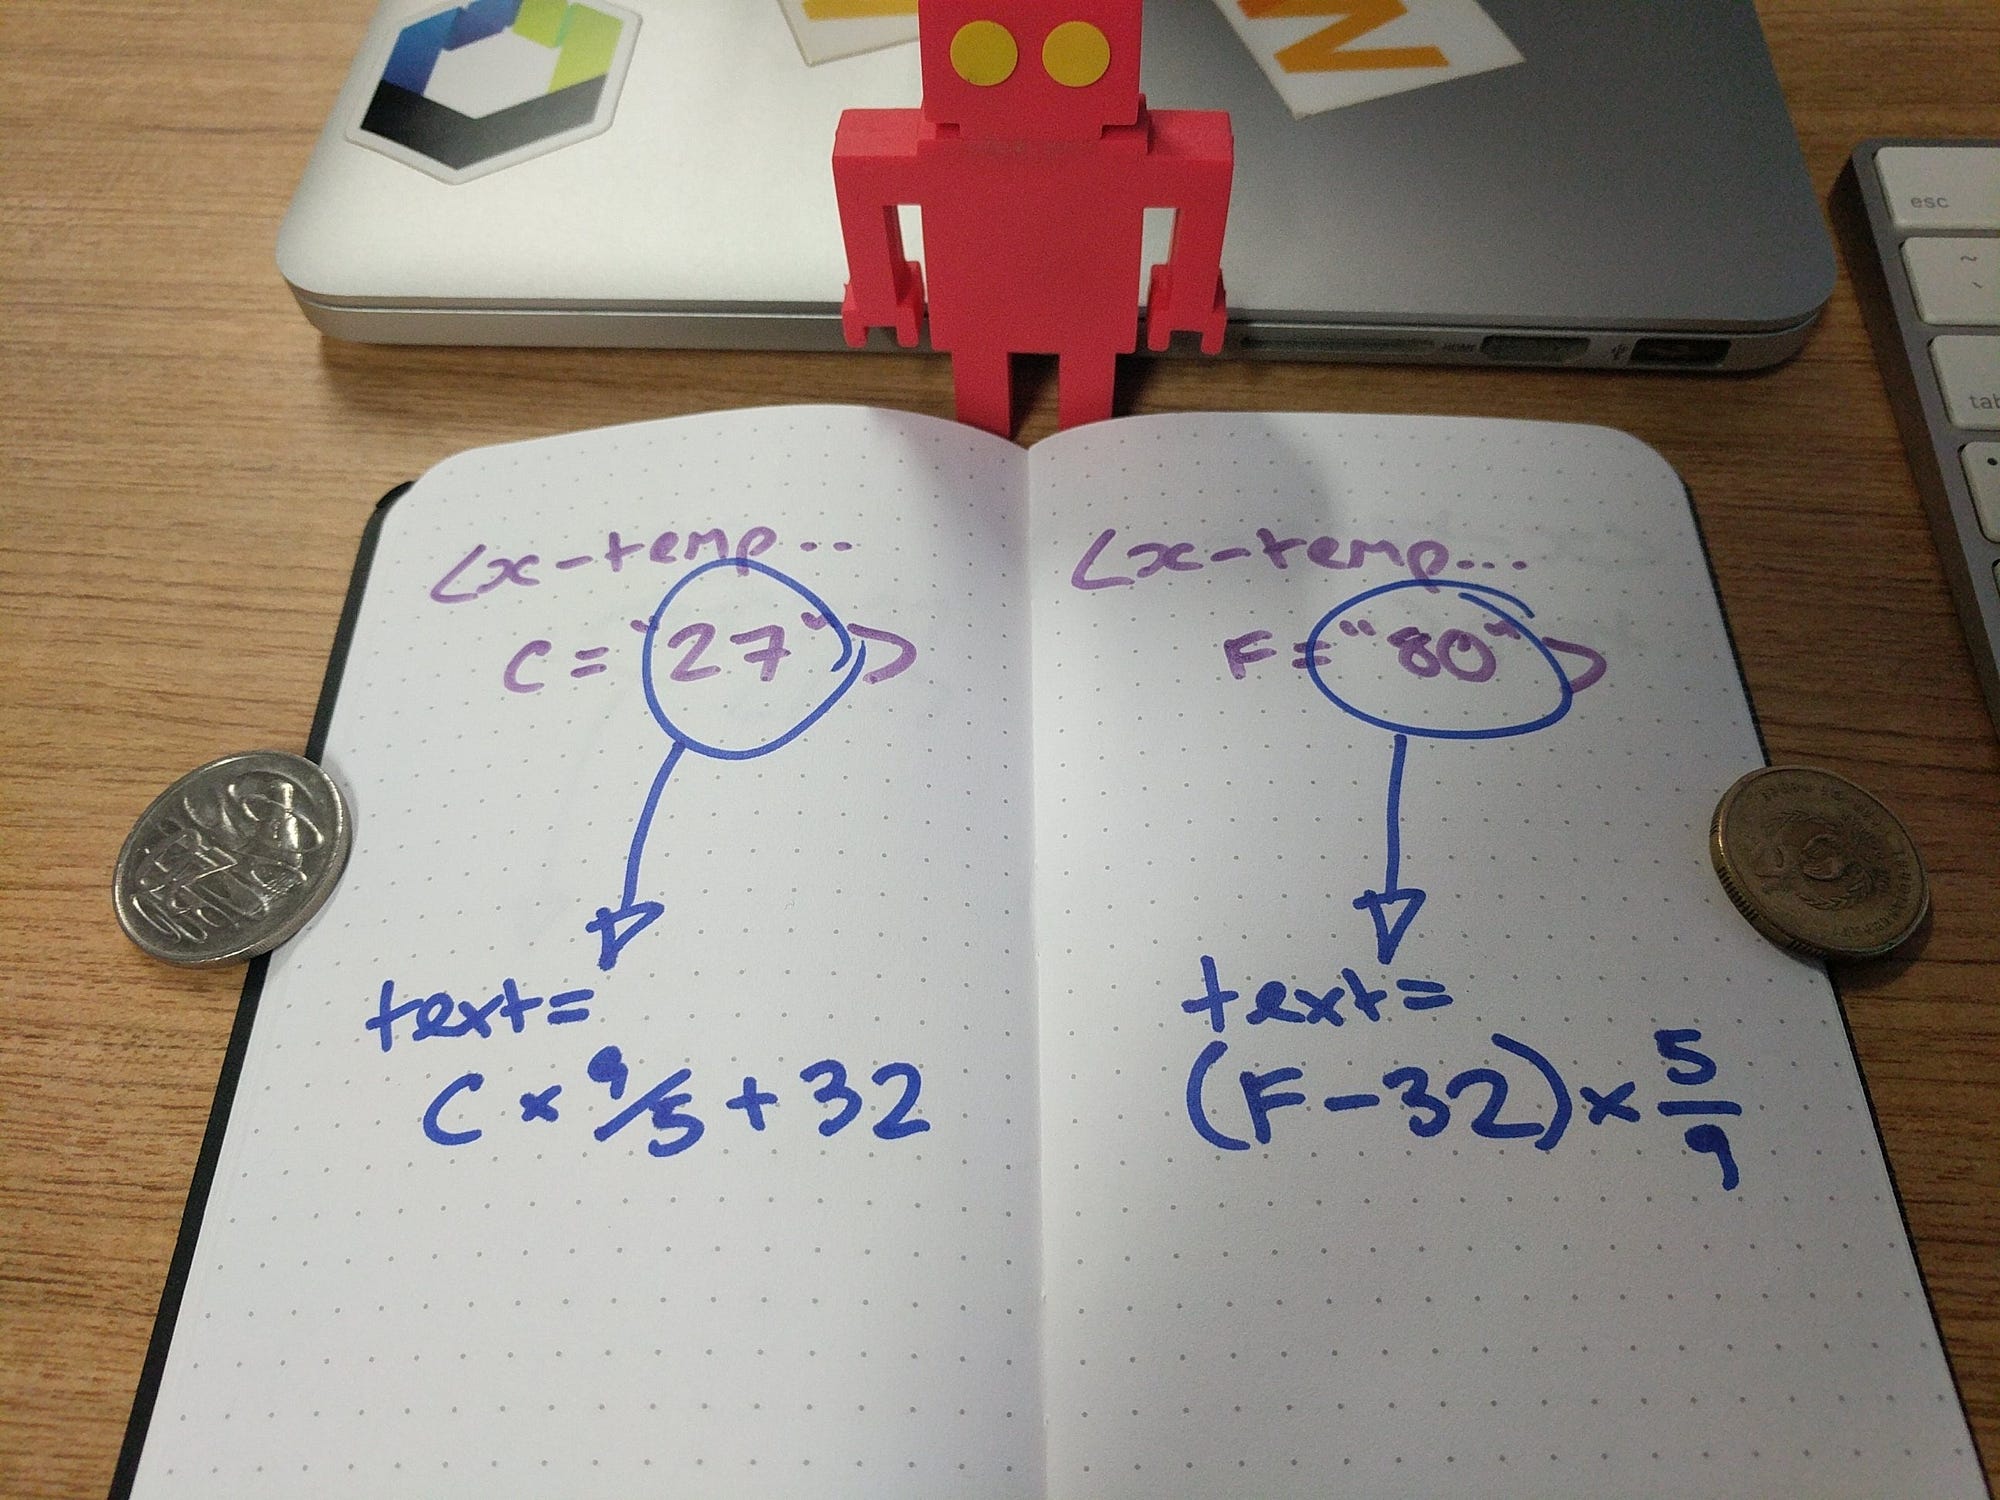 W
esc
~
`
tab
HDMI
<x-temp..
C="27">
text=
C × 9/5 + 32
<x-temp...
F="80">
text=
(F-32) × 5/9